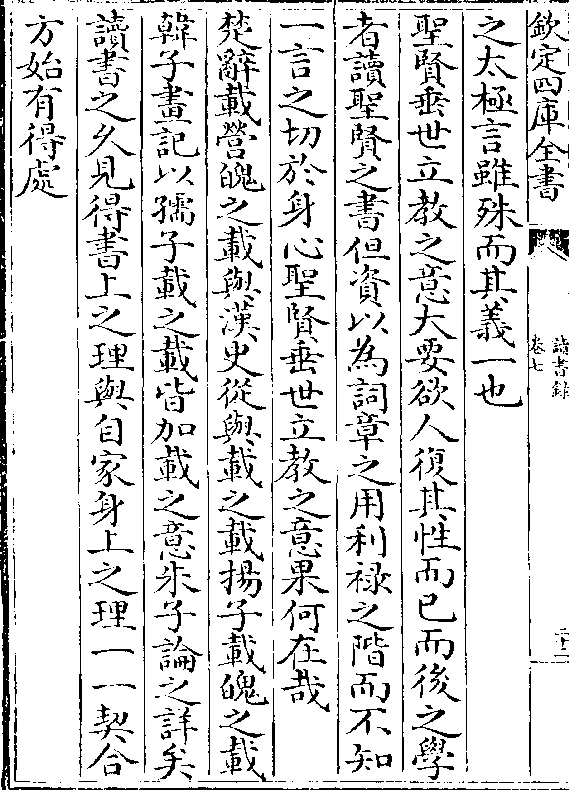 欽定四庫全書
讀書錄
卷七
二十二
之太極言雖殊而其義一也
聖賢垂世立教之意大要欲人復其性而已而後之學
者讀聖賢之書但資以為詞章之用利禄之階而不知
一言之切於身心聖賢垂世立教之意果何在哉
楚辭載營魄之載與漢史從與載之載揚子載魄之載
韓子畫記以孺子載之載皆加載之意朱子論之詳矣
讀書之久見得書上之理與自家身上之理一一契合
方始有得處